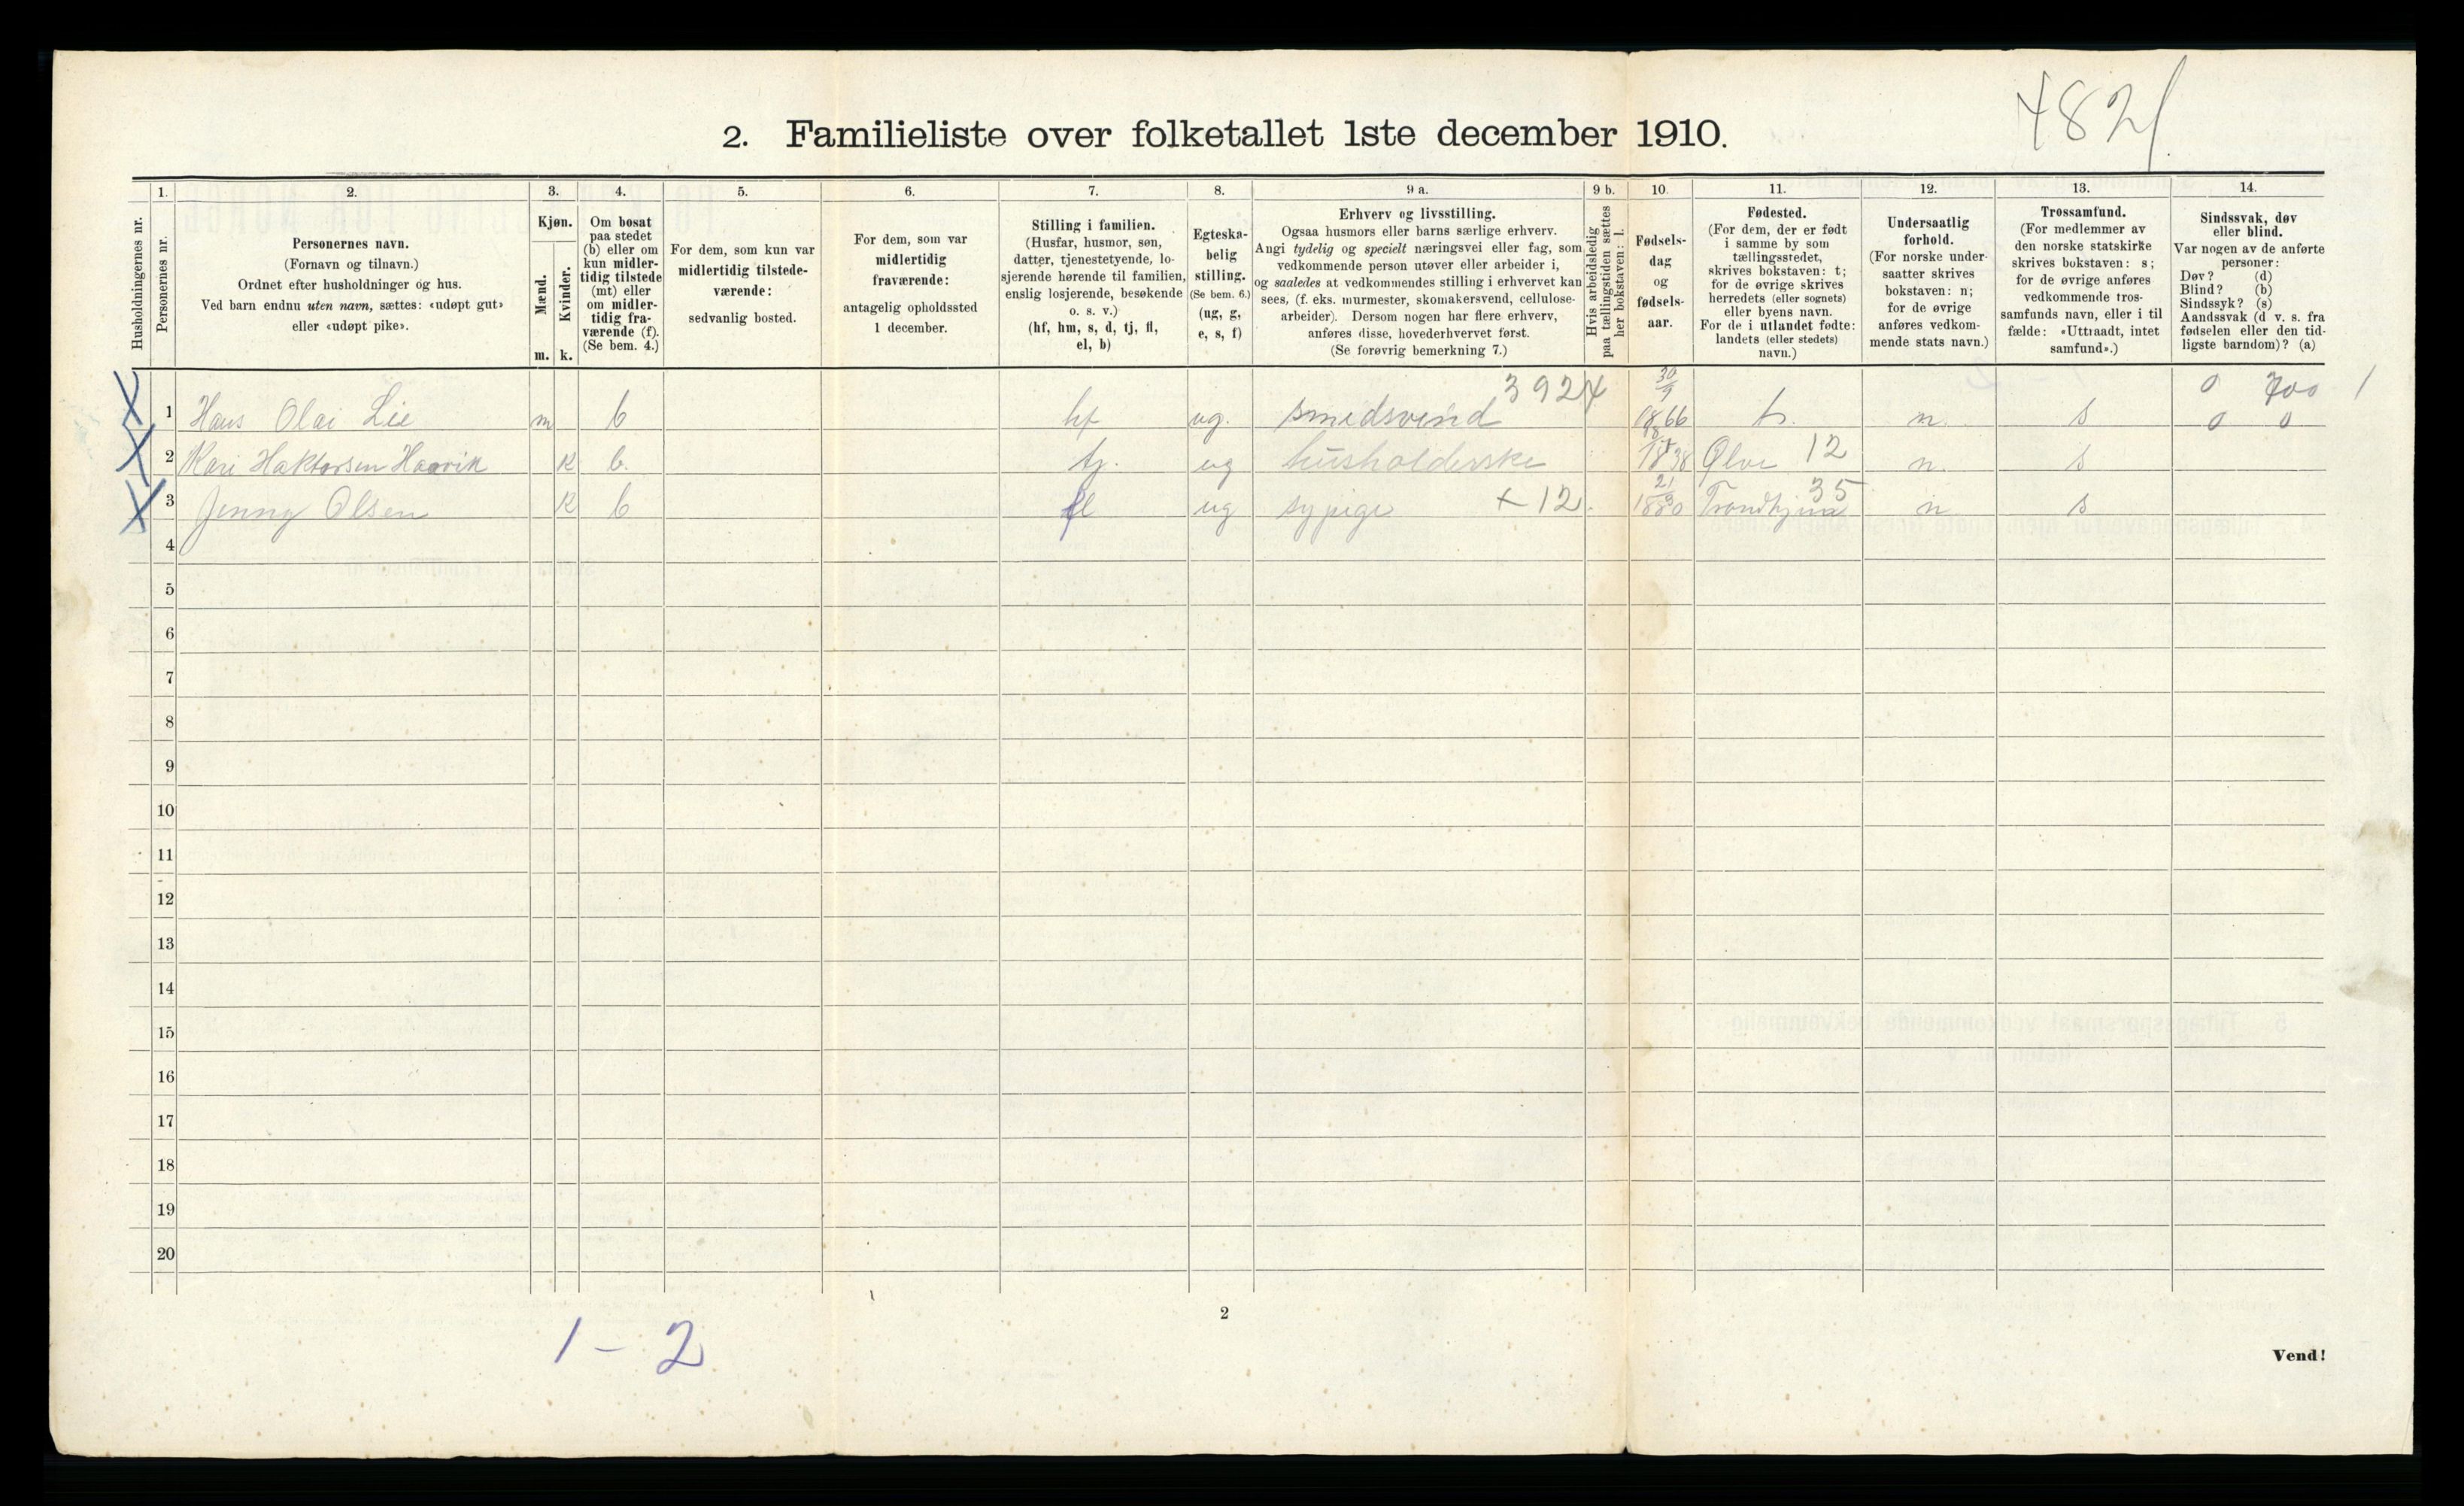 482
2. Familieliste over folketallet 1ste december 1910.
Husholdningernes nr.
1.
Personernes nr.
2.
Personernes navn.
(Fornavn og tilnavn.)
Ordnet efter husholdninger og hus.
Ved barn endnu uten navn, sættes: «udøpt gut»
eller «udøpt pike».
3.
Kjøn.
Mænd.
Kvinder.
m. k.
4.
Om bosat
paa stedet
(b) eller om
kun midler-
tidig tilstede
(mt) eller
om midler-
tidig fra-
værende (f).
(Se bem. 4.)
5.
For dem, som kun var
midlertidig tilstede-
værende:
sedvanlig bosted.
6.
For dem, som var
midlertidig
fraværende:
antagelig opholdssted
1 december.
7.
Stilling i familien.
(Husfar, husmor, søn,
datter, tjenestetyende, lo-
sjerende hørende til familien,
enslig losjerende, besøkende
o. s. v.)
(hf, hm, s, d, tj, fl,
el, b)
8.
Egteska-
belig
stilling.
(Se bem. 6.)
(ug, g,
e, s, f)
9 a.
Erhverv og livsstilling.
Ogsaa husmors eller barns særlige erhverv.
Angi tydelig og specielt næringsvei eller fag, som
vedkommende person utøver eller arbeider i,
og saaledes at vedkommendes stilling i erhvervet kan
sees, (f. eks. murmester, skomakersvend, cellulose-
arbeider). Dersom nogen har flere erhverv,
anføres disse, hovederhvervet først.
(Se forøvrig bemerkning 7.)
9 b.
Hvis arbeidsledig
paa tællingstiden sættes
her bokstaven: l.
10.
Fødsels-
dag
og
fødsels-
aar.
11.
Fødested.
(For dem, der er født
i samme by som
tællingsstedet,
skrives bokstaven: t;
for de øvrige skrives
herredets (eller sognets)
eller byens navn.
For de i utlandet fødte:
landets (eller stedets)
navn.)
12.
Undersaatlig
forhold.
(For norske under-
saatter skrives
bokstaven: n;
for de øvrige
anføres vedkom-
mende stats navn.)
13.
Trossamfund.
(For medlemmer av
den norske statskirke
skrives bokstaven: s;
for de øvrige anføres
vedkommende tros-
samfunds navn, eller i til
fælde: «Uttraadt, intet
samfund».)
14.
Sindssvak, døv
eller blind.
Var nogen av de anførte
personer:
Døv? (d)
Blind? (b)
Sindssyk? (s)
Aandssvak (d v. s. fra
fødselen eller den tid-
ligste barndom)? (a)
3924 30/9 0 700 1
X 1 Hans Olai Lie m b hf ug. smedsvend 1866 t. n. s 0 0
X 2 Kari Haktorsen Haavik k b. tj. ug husholderske 1838 Ølve 12 n. s
X 3 Jenny Olsen k b el ug sypige + 12 1880 Trondhjem 35 n s
4
5
6
7
8
9
10
11
12
13
14
15
16
17
18
19
20
2
1 - 2
Vend!